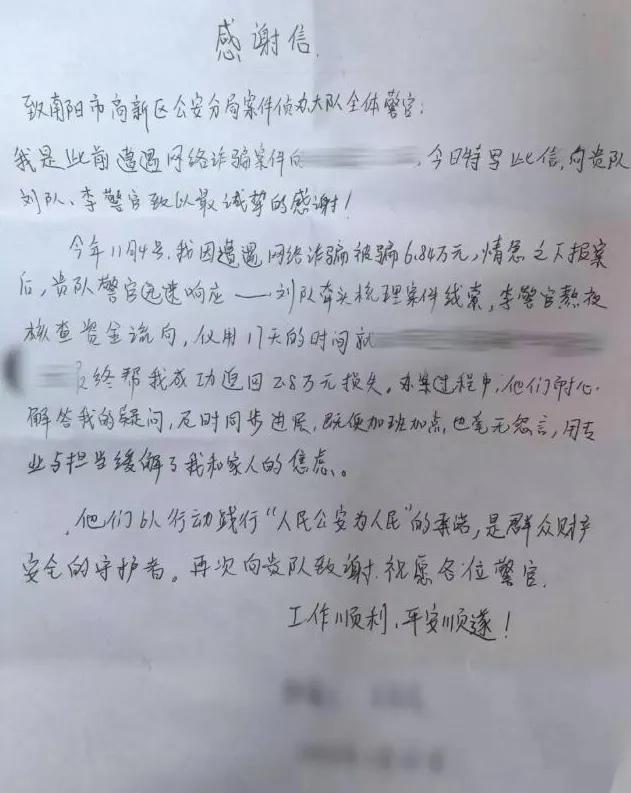 感谢信
致南阳市高新区公安分局案件侦办大队全体警官:
我是此前遭遇网络诈骗案件的 ,今日特写此信,向贵队
刘队、李警官致以最诚挚的感谢!
今年11月4号,我因遭遇网络诈骗被骗6.84万元,情急之下报案
后,贵队警官迅速响应——刘队牵头梳理案件线索,李警官熬夜
核查资金流向,仅用17天的时间就
终帮我成功追回2.8万元损失。办案过程中,他们耐心
解答我的疑问,及时同步进展,既便加班加点,也毫无怨言,用专
业与担当缓解了我和家人的焦虑。
他们以行动践行“人民公安为人民”的承诺,是群众财产
安全的守护者。再次向贵队致谢.祝愿各位警官.
工作顺利,平安顺遂!